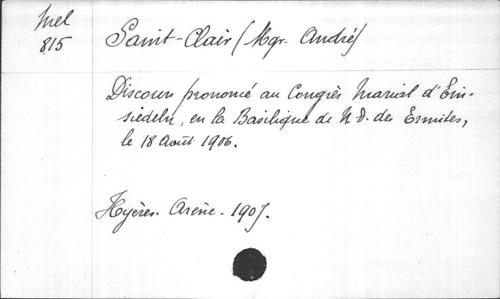 Mel
815
Saint-Clair (Mgr. André)
Discours prononcé au Congrès Marial d'Ein-
siedeln, en la Basilique de N. D. des Ermites,
le 18 Août 1906.
Hyères. Arène. 1907.